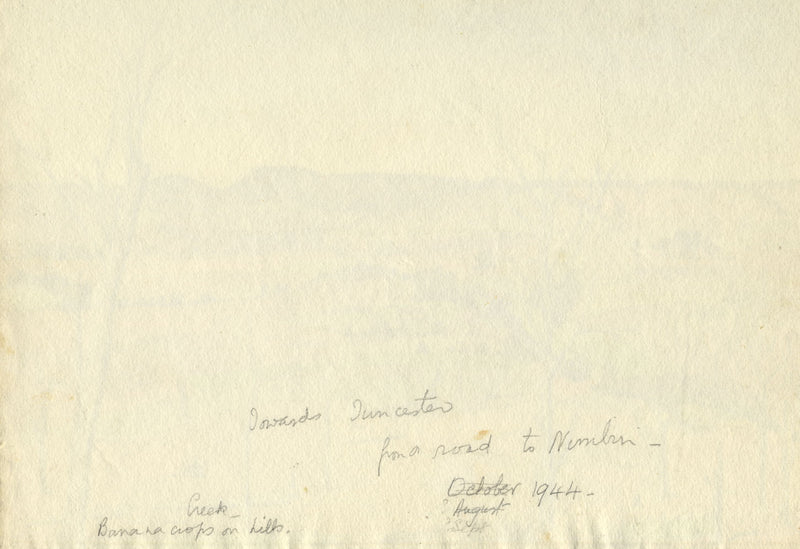 Towards Tuncester
from road to Nimbin -
October 1944 -
? August
? Sept
Creek -
Banana crops on hills.